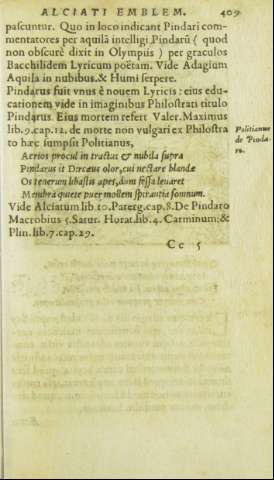 ALCIATI EMBLEM. 409
pascuntur. Quo in loco indicant Pindari com-
mentatores per aquilā intelligi Pindarū ( quod
non obscurè dixit in Olympiis ) per graculos
Bacchilidem Lyricum poëtam. Vide Adagium
Aquila in nubibus, & Humi serpere.
Pindarus fuit vnus è nouem Lyricis: eius edu-
cationem vide in imaginibus Philostrati titulo
Pindarus. Eius mortem refert Valer. Maximus
lib. 9. cap. 12. de morte non vulgari ex Philostra
to hæc sumpsit Politianus,
Politianus
de Pinda-
ro.
Aerios procul in tractus & nubila supra
Pindarus it Dircæus olor, cui nectare blandæ
Os tenerum libastis apes, dum fessa leuaret
Membra quiete puer mollem spirantia somnum.
Vide Alciatum lib. 10. Parerg. cap. 8. De Pindaro
Macrobius 5. Satur. Horat. lib. 4. Carminum: &
Plin. lib. 7. cap. 29.
Cc 5